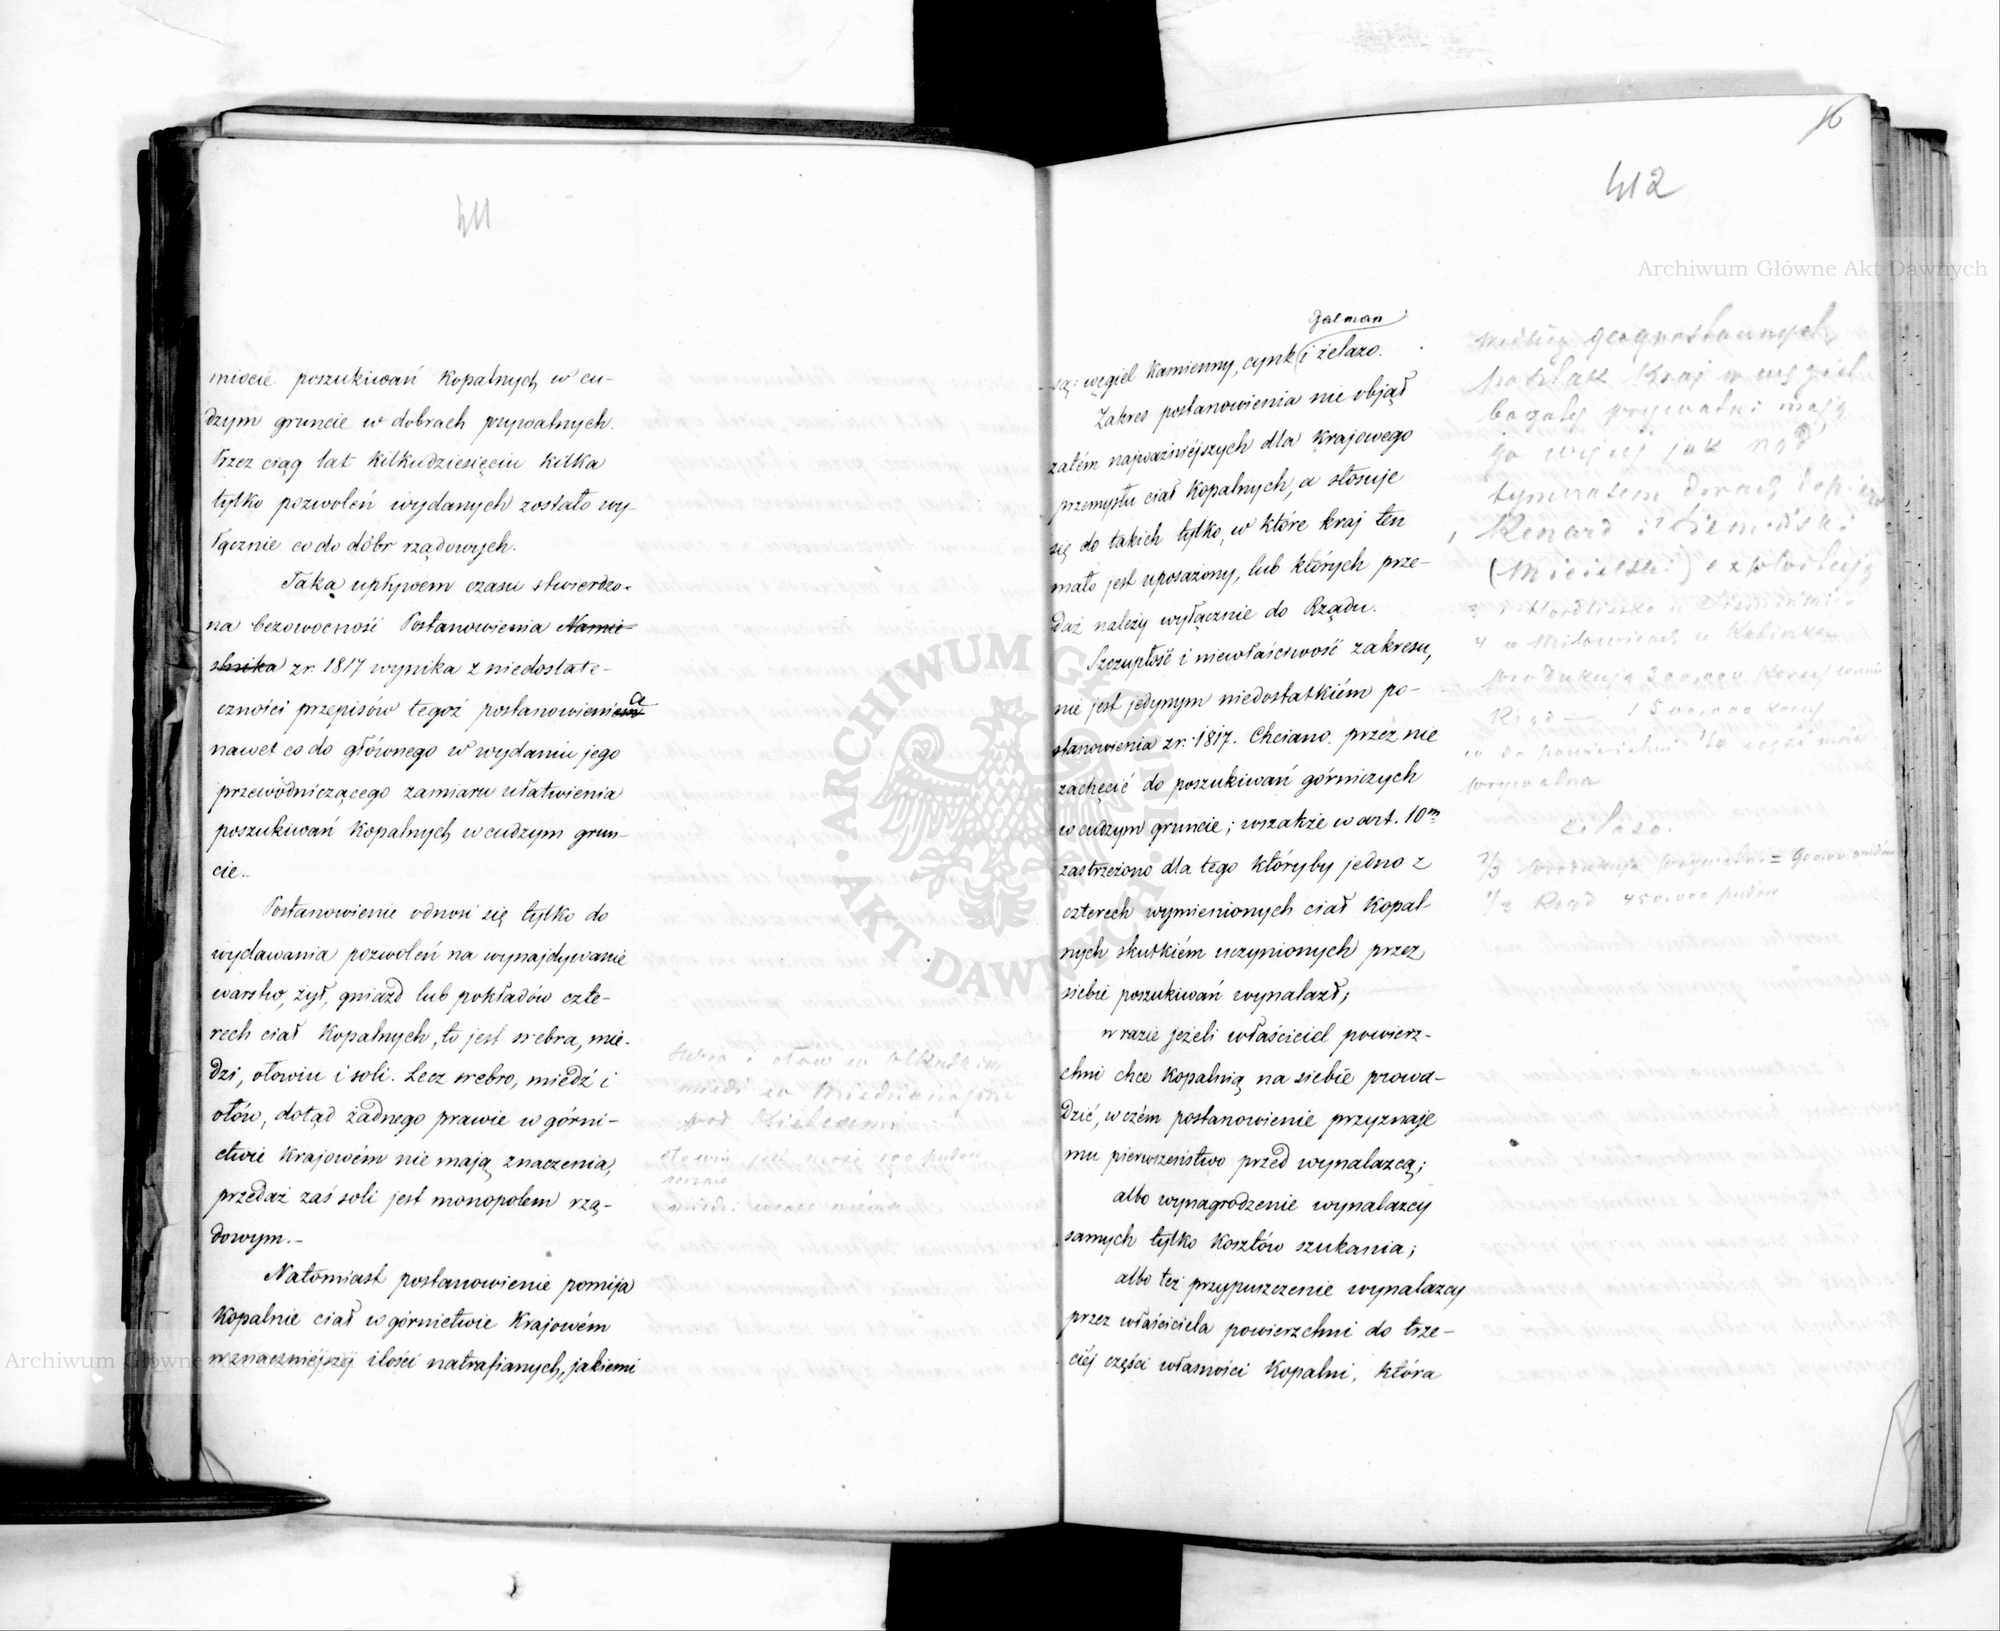 411
miocie poszukiwań Kopalnych w cu-
dzym gruncie w dobrach prywatnych.
Przez ciąg lat kilkudziesięciu kilka
tylko pozwoleń wydanych zostało wy-
łącznie co do dóbr rządowych.
Taka upływem czasu stwierdzo-
na bezowocność Postanowienia Namie-
stnika z r. 1817 wynika z niedostate-
czności przepisów tegoż postanowienia
nawet co do głównego w wydaniu jego
przewodniczącego zamiaru ułatwienia
poszukiwań Kopalnych w cudzym grun-
cie.
Postanowienie odnosi się tylko do
wydawania pozwoleń na wynajdywanie
warstw, żył, gniazd lub pokładów czte-
rech ciał Kopalnych, to jest srebra, mie-
dzi, ołowiu i soli. Lecz srebro, miedź i
ołów, dotąd żadnego prawie w górni-
ctwie Krajowém nie mają znaczenia,
przedaż zaś soli jest monopolem rzą-
dowym.-
Natomiast postanowienie pomija
Kopalnie ciał w górnictwie Krajowém
w znaczniejszéj ilości natrafianych, jakiemi
i ołów w Olkuskim
miedź w Miedzianej górze
pod Kielcami
16
412
Galman
są: węgiel Kamienny, cynk i żelazo.
Zakres postanowienia nie objął
zatém najważniejszych dla Krajowego
przemysłu ciał Kopalnych, a stosuje
się do takich tylko, w które kraj ten
mało jest uposażony, lub których prze-
daż należy wyłącznie do Rządu.
Szczupłość i niewłaściwość zakresu,
nie jest jedynym niedostatkiém po-
stanowienia z r. 1817. Chciano przez nie
zachęcić do poszukiwań górniczych
w cudzym gruncie; wszakże w art. 10m
zastrzeżono dla tego któryby jedno z
czterech wymienionych ciał Kopal-
nych skutkiém uczynionych przez
siebie poszukiwań wynalazł;
w razie jeżeli właściciel powierz-
chni chce Kopalnią na siebie prowa-
dzić, w czém postanowienie przyznaje
mu pierwszeństwo przed wynalazcą;
albo wynagrodzenie wynalazcy
samych tylko Kosztów szukania;
albo też przypuszczenie wynalazcy
przez właściciela powierzchni do trze-
ciéj części własności Kopalni, która
Kraj w węgiel
bogaty prywatni mają
go więcej jak rząd
tymczasem dwaj dopiero
Renard i
exploatują
produkują 300,000
Rząd — 1500,000
prywatna
żelazo.
Rząd 450,000 pudów
Archiwum Główne Akt Dawnych
ARCHIWUM GŁÓWNE AKT DAWNYCH
Archiwum Główne